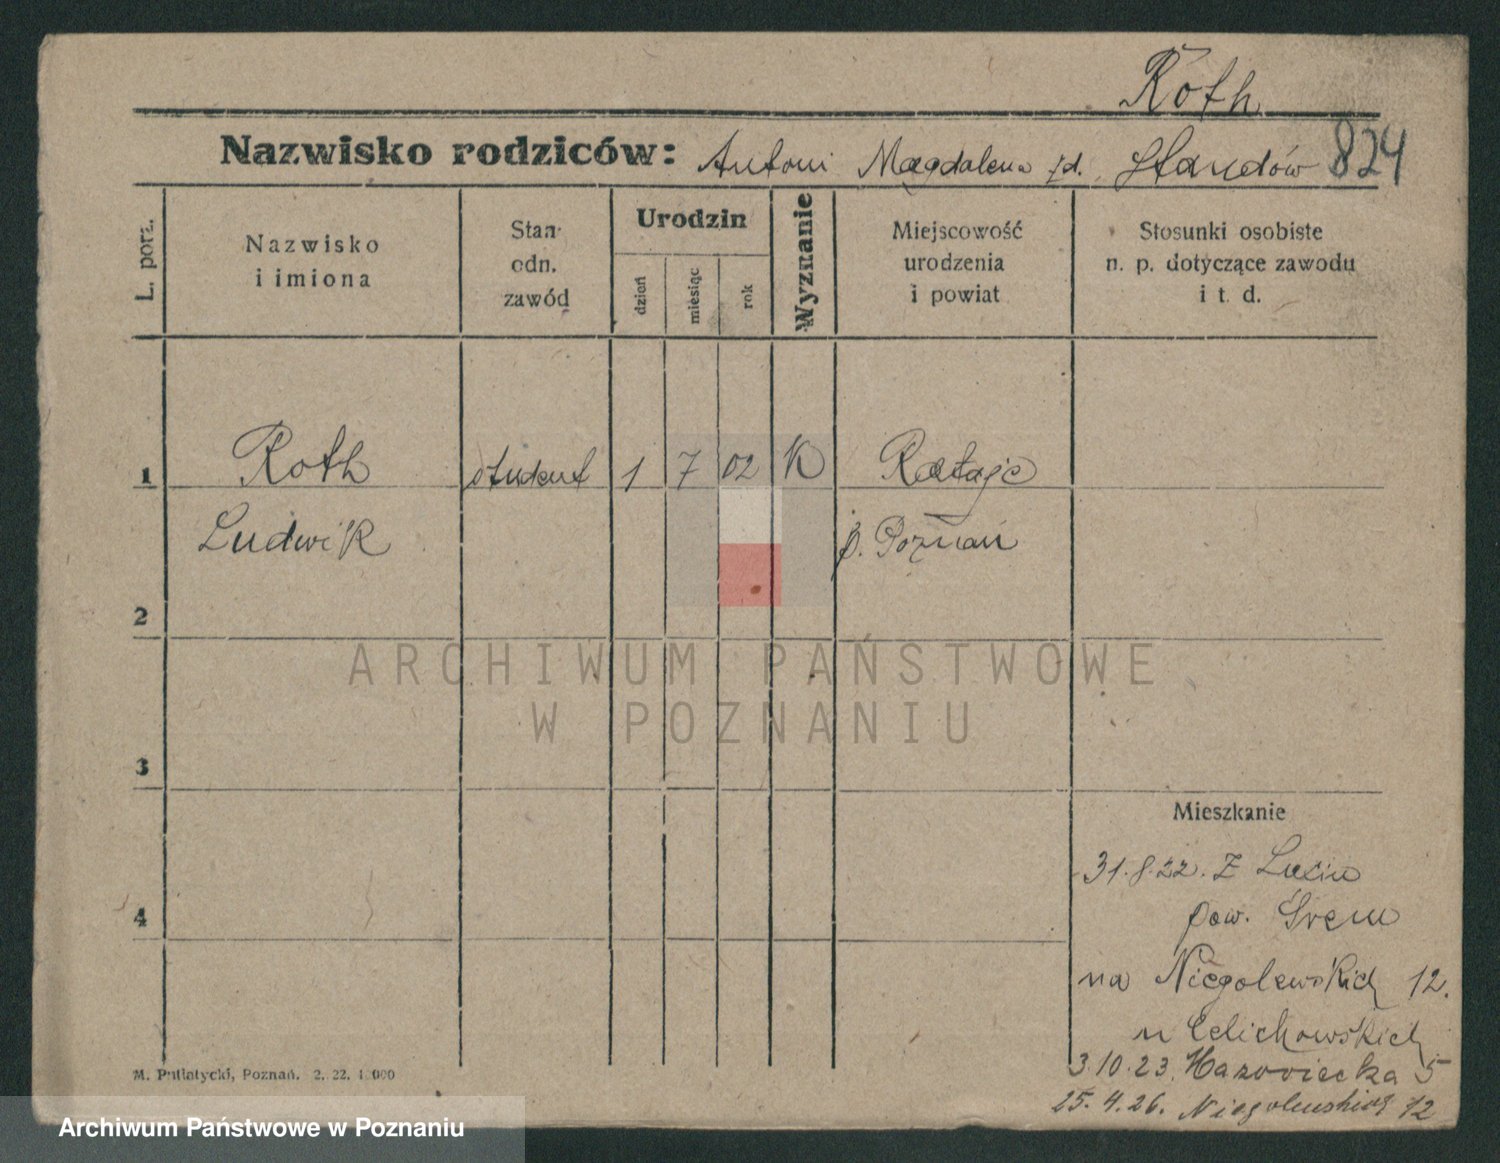 Roth
Nazwisko rodziców: Antoni Magdalena zd. Handów 824
L. porz.
Nazwisko
i imiona
Stan
odn.
zawód
Urodzin
dzień
miesiąc
rok
Wyznanie
Miejscowość
urodzenia
i powiat
Stosunki osobiste
n. p. dotyczące zawodu
i t. d.
1 Roth student 1 7 02 K Rataje
Ludwik p. Poznań
2
ARCHIWUM PAŃSTWOWE
W POZNANIU
3
Mieszkanie
31.8.22. z
pow. Śrem
4
na Niegolewskich 12.
u Celichowskich
3.10.23. Mazowiecka 5
25.4.26. Niegolewskich 12
M. Putiatycki, Poznań. 2. 22. 000
Archiwum Państwowe w Poznaniu